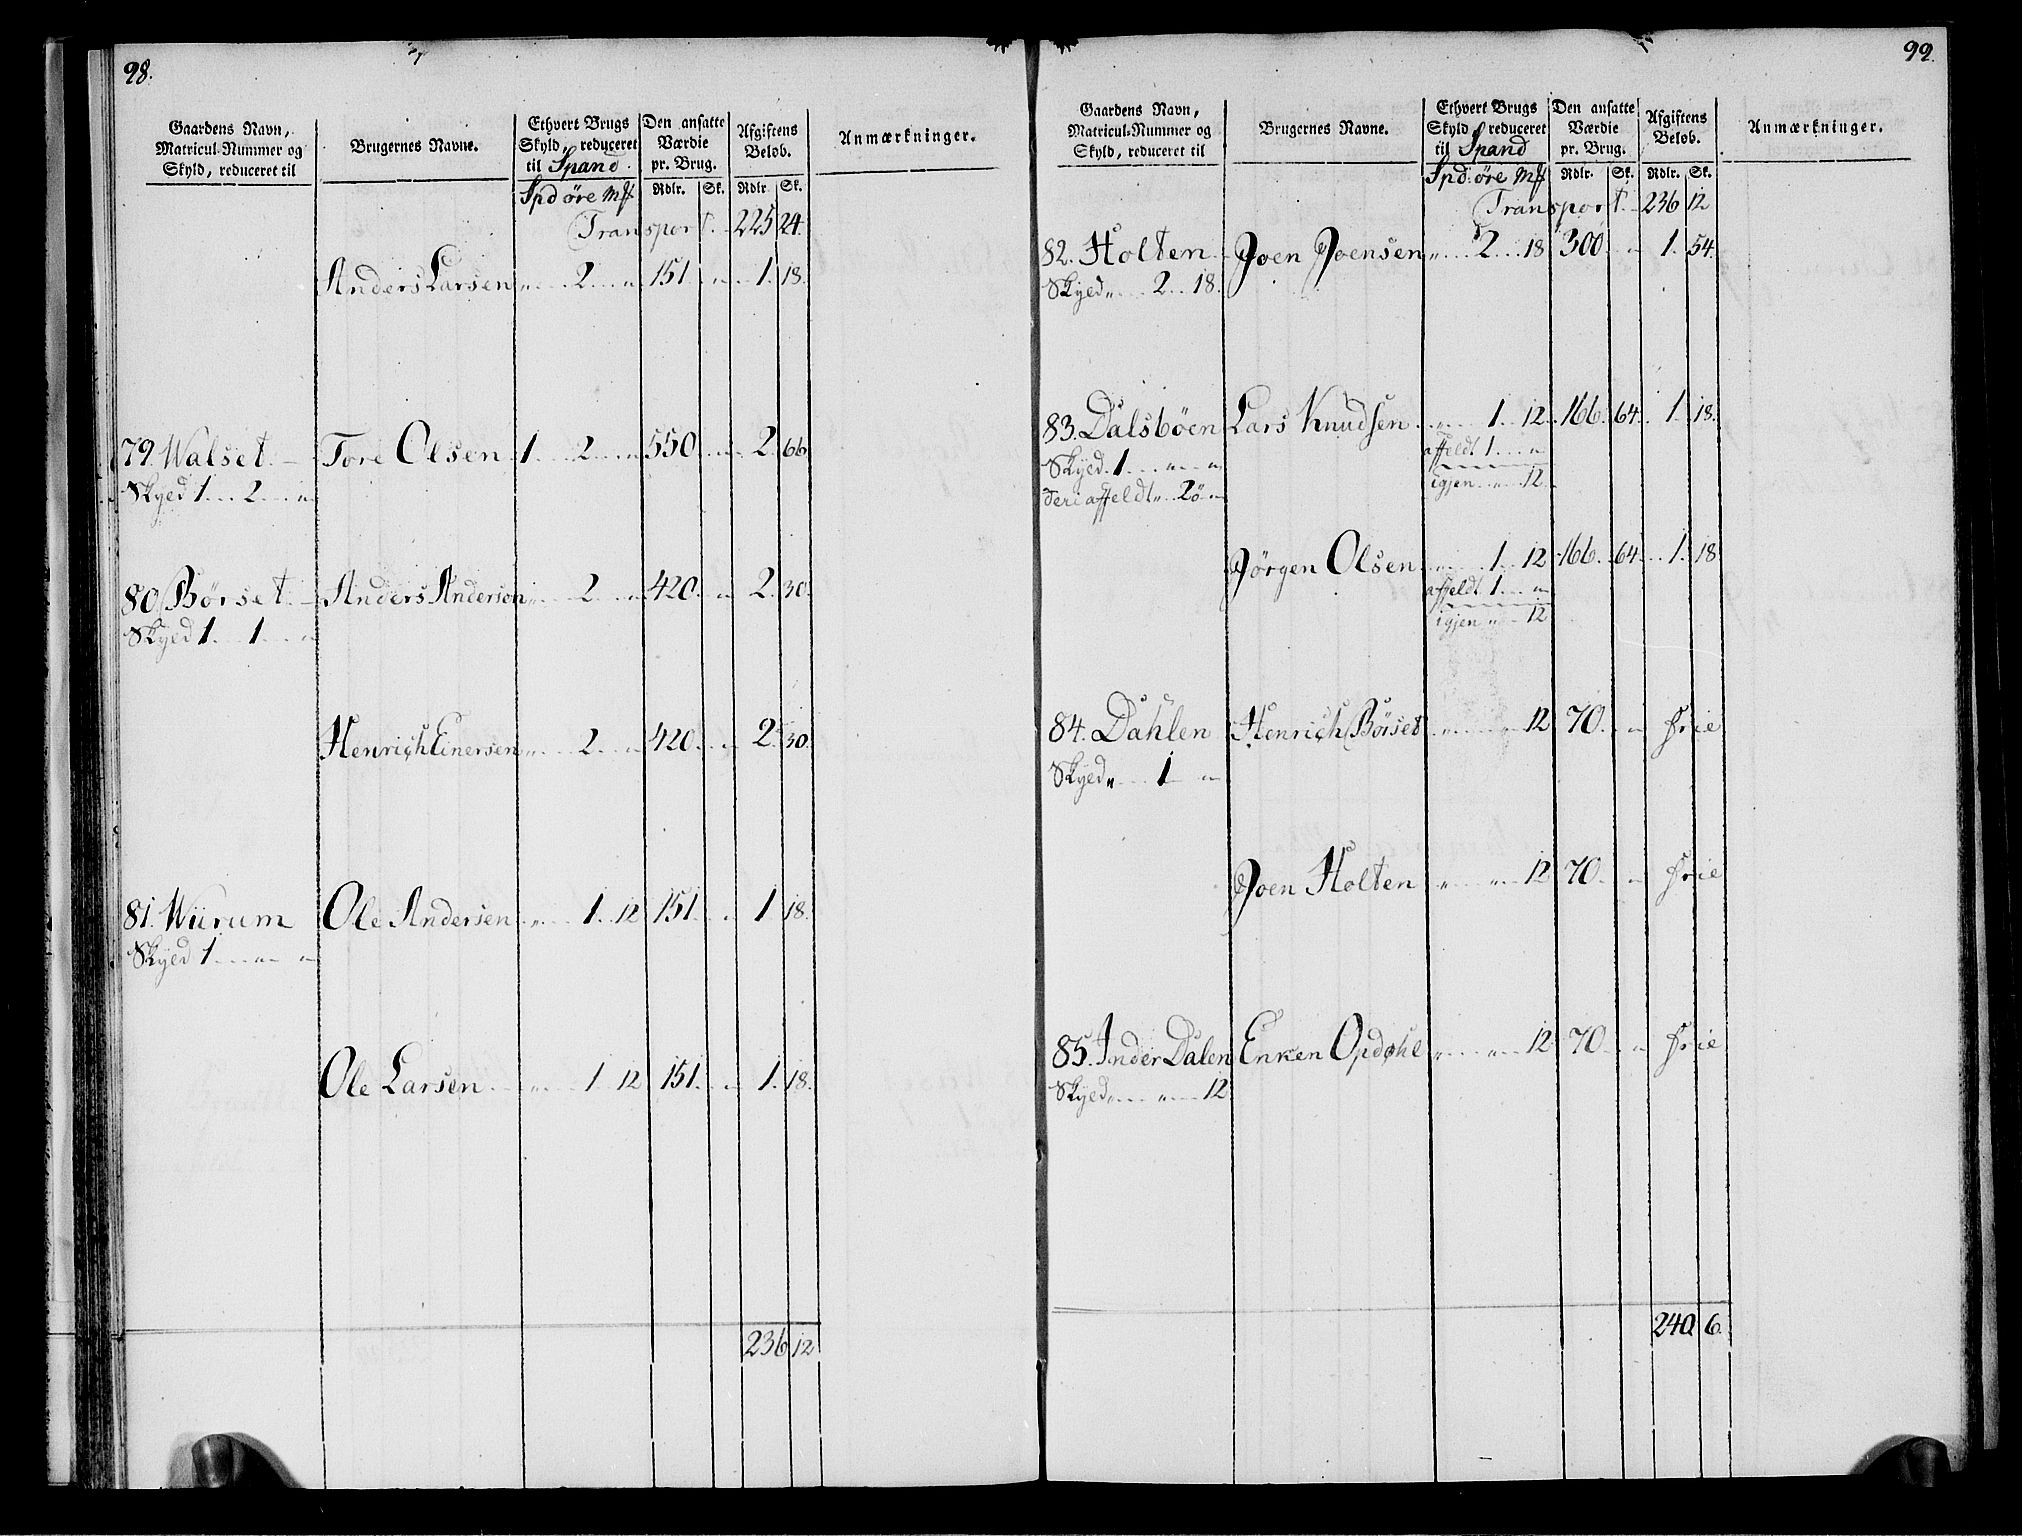 98.
Gaardens Navn, Matricul-Nummer og Skyld, reduceret til
Brugernes Navne.
Ethvert Brugs Skyld, reduceret til Spand.
Den ansatte Værdie pr. Brug.
Afgiftens Beløb.
Anmærkninger.
Spd öre m℔ Rdlr. Sk. Rdlr. Sk.
Transport. 225 24.
Anders Larsen „ 2 „ 151. „ 1. 18.
79. Walset. Tore Olsen 1 2 „ 550 „ 2. 66
Skyed 1 2 „
80 Börset. Anders Andersen „ 2 „ 420. „ 2. 30.
Skyed 1 1 „
Henrich Einersen „ 2 „ 420. „ 2. 30.
81. Wiirum Ole Andersen „ 1 12 151. „ 1 18.
Skyed 1 „ „
Ole Larsen „ 1 12 151. „ 1. 18.
236 12
99.
Gaardens Navn, Matricul-Nummer og Skyld, reduceret til
Brugernes Navne.
Ethvert Brugs Skyld, reduceret til Spand
Den ansatte Værdie pr. Brug.
Afgiftens Beløb.
Anmærkninger.
Spd: öre m℔ Rdlr. Sk. Rdlr. Sk.
Transport. 236 12
82. Holten Joen Joensen „ 2 18 300 „ 1. 54.
Skyed „ 2 18.
83. Dalsböen Lars Knudsen „ 1 12 166. 64. 1. 18.
Skyed. 1 „ „ affeldt 1 „
deri affeldt „ 2ö „ igjen „ 12.
Jörgen Olsen „ 1 12 166. 64 1. 18
affeldt 1 „
igjen „ 12
84. Dahlen Henrich Börset „ „ 12 70. „ frie
Skyed „ 1 „
Joen Holten „ „ 12 70. „ frie
85. Inder Dalen Enken Opdahl „ „ 12 70 „ frie
Skyed „ „ 12
240 6.